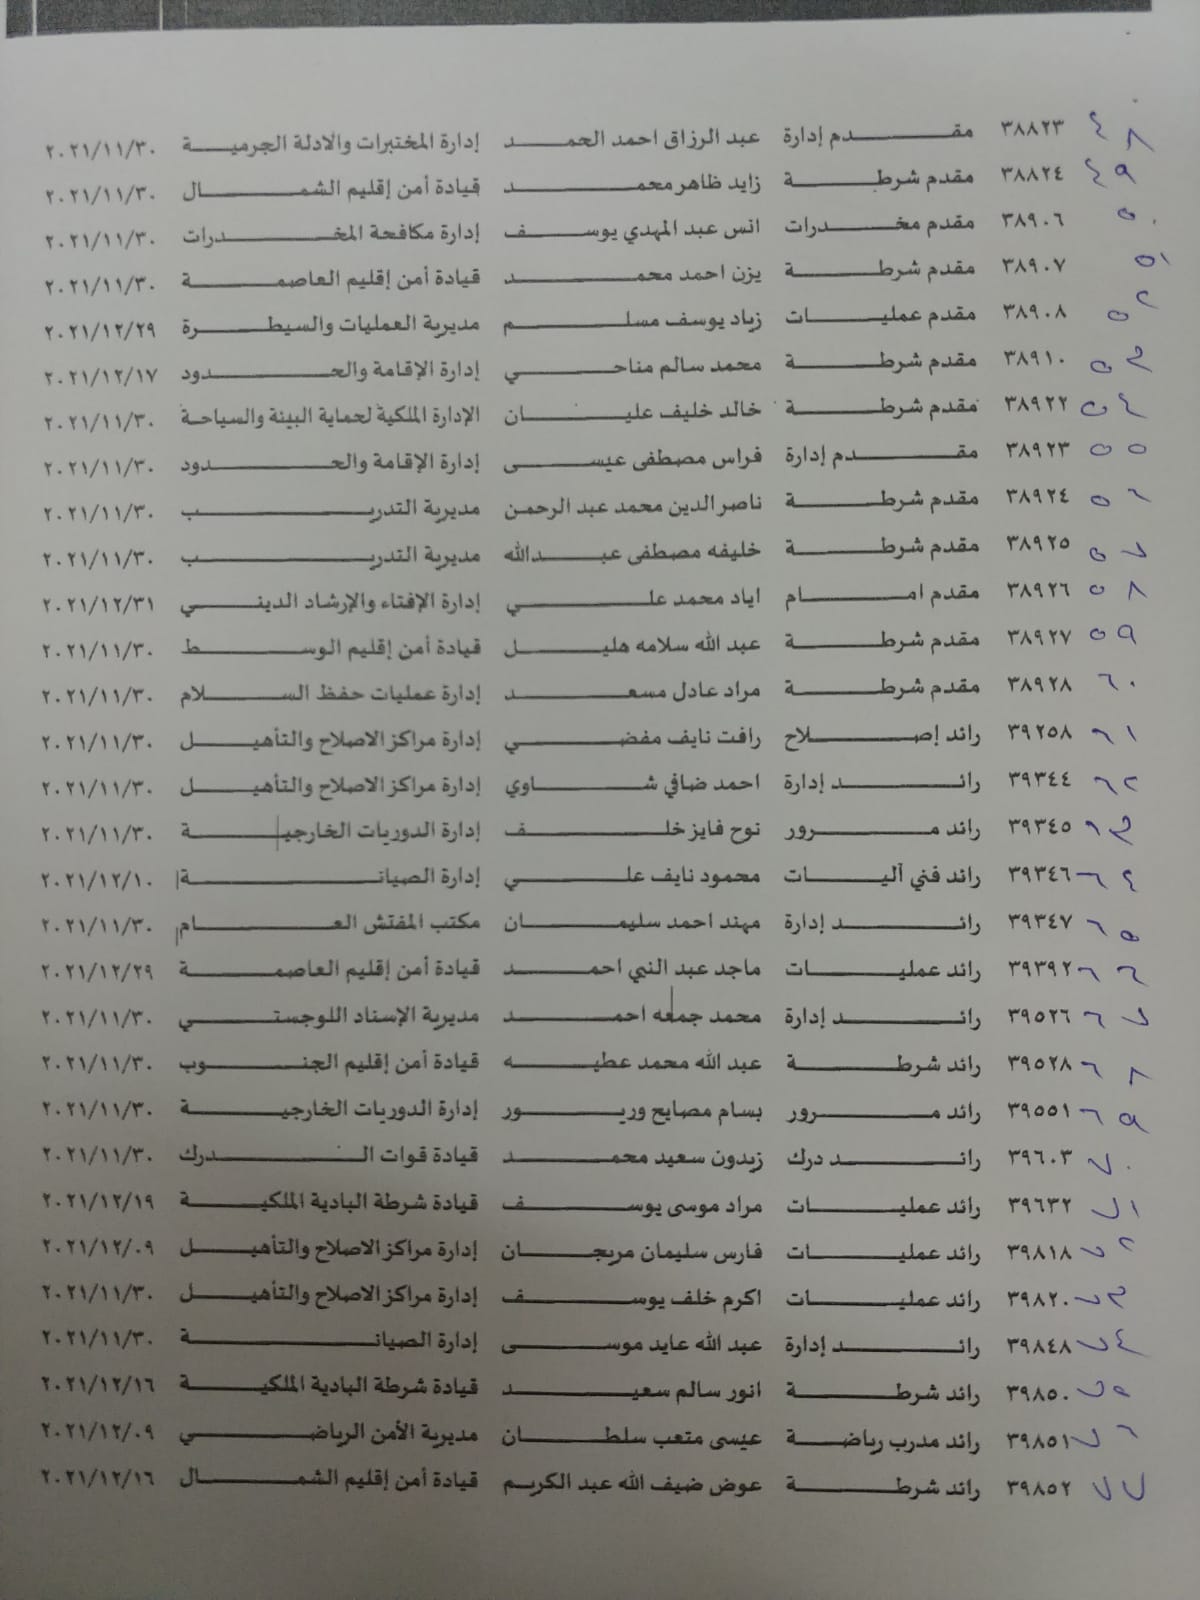 ٤٨ ٣٨٨٢٣ مقدم إدارة عبد الرزاق احمد الحمد إدارة المختبرات والادلة الجرمية ٢٠٢١/١١/٣٠
٤٩ ٣٨٨٢٤ مقدم شرطة زايد ظاهر محمد قيادة أمن إقليم الشمال ٢٠٢١/١١/٣٠
٥٠ ٣٨٩٠٦ مقدم مخدرات انس عبد المهدي يوسف إدارة مكافحة المخدرات ٢٠٢١/١١/٣٠
٥١ ٣٨٩٠٧ مقدم شرطة يزن احمد محمد قيادة أمن إقليم العاصمة ٢٠٢١/١١/٣٠
٥٢ ٣٨٩٠٨ مقدم عمليات زياد يوسف مسلم مديرية العمليات والسيطرة ٢٠٢١/١٢/٢٩
٥٣ ٣٨٩١٠ مقدم شرطة محمد سالم مناحي إدارة الإقامة والحدود ٢٠٢١/١٢/١٧
٥٤ ٣٨٩٢٢ مقدم شرطة خالد خليف عليان الإدارة الملكية لحماية البيئة والسياحة ٢٠٢١/١١/٣٠
٥٥ ٣٨٩٢٣ مقدم إدارة فراس مصطفى عيسى إدارة الإقامة والحدود ٢٠٢١/١١/٣٠
٥٦ ٣٨٩٢٤ مقدم شرطة ناصر الدين محمد عبد الرحمن مديرية التدريب ٢٠٢١/١١/٣٠
٥٧ ٣٨٩٢٥ مقدم شرطة خليفه مصطفى عبدالله مديرية التدريب ٢٠٢١/١١/٣٠
٥٨ ٣٨٩٢٦ مقدم امام اياد محمد علي إدارة الإفتاء والإرشاد الديني ٢٠٢١/١٢/٣١
٥٩ ٣٨٩٢٧ مقدم شرطة عبد الله سلامه هليل قيادة أمن إقليم الوسط ٢٠٢١/١١/٣٠
٦٠ ٣٨٩٢٨ مقدم شرطة مراد عادل مسعد إدارة عمليات حفظ السلام ٢٠٢١/١١/٣٠
٦١ ٣٩٢٥٨ رائد إصلاح رافت نايف مفضي إدارة مراكز الاصلاح والتأهيل ٢٠٢١/١١/٣٠
٦٢ ٣٩٣٤٤ رائد إدارة احمد ضافي شاوي إدارة مراكز الاصلاح والتأهيل ٢٠٢١/١١/٣٠
٦٣ ٣٩٣٤٥ رائد مرور نوح فايز خلف إدارة الدوريات الخارجية ٢٠٢١/١١/٣٠
٦٤ ٣٩٣٤٦ رائد فني آليات محمود نايف علي إدارة الصيانة ٢٠٢١/١٢/١٠
٦٥ ٣٩٣٤٧ رائد إدارة مهند احمد سليمان مكتب المفتش العام ٢٠٢١/١١/٣٠
٦٦ ٣٩٣٩٢ رائد عمليات ماجد عبد النبي احمد قيادة أمن إقليم العاصمة ٢٠٢١/١٢/٢٩
٦٧ ٣٩٥٢٦ رائد إدارة محمد جمعه احمد مديرية الإسناد اللوجستي ٢٠٢١/١١/٣٠
٦٨ ٣٩٥٢٨ رائد شرطة عبد الله محمد عطيه قيادة أمن إقليم الجنوب ٢٠٢١/١١/٣٠
٦٩ ٣٩٥٥١ رائد مرور بسام مصايح وريور إدارة الدوريات الخارجية ٢٠٢١/١١/٣٠
٧٠ ٣٩٦٠٣ رائد درك زيدون سعيد محمد قيادة قوات الدرك ٢٠٢١/١١/٣٠
٧١ ٣٩٦٣٢ رائد عمليات مراد موسى يوسف قيادة شرطة البادية الملكية ٢٠٢١/١٢/١٩
٧٢ ٣٩٨١٨ رائد عمليات فارس سليمان مريجان إدارة مراكز الاصلاح والتأهيل ٢٠٢١/١٢/٠٩
٧٣ ٣٩٨٢٠ رائد عمليات اكرم خلف يوسف إدارة مراكز الاصلاح والتأهيل ٢٠٢١/١١/٣٠
٧٤ ٣٩٨٤٨ رائد إدارة عبد الله عايد موسى إدارة الصيانة ٢٠٢١/١١/٣٠
٧٥ ٣٩٨٥٠ رائد شرطة انور سالم سعيد قيادة شرطة البادية الملكية ٢٠٢١/١٢/١٦
٧٦ ٣٩٨٥١ رائد مدرب رياضة عيسى متعب سلطان مديرية الأمن الرياضي ٢٠٢١/١٢/٠٩
٧٧ ٣٩٨٥٢ رائد شرطة عوض ضيف الله عبد الكريم قيادة أمن إقليم الشمال ٢٠٢١/١٢/١٦